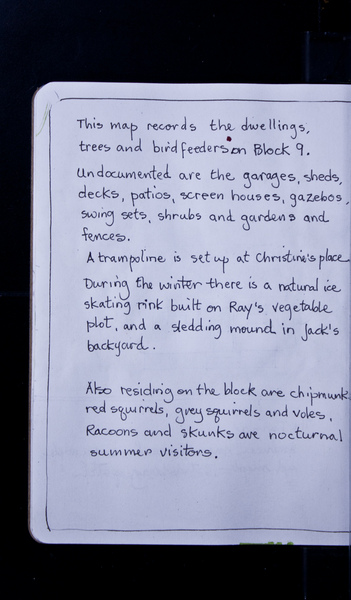 This map records the dwellings,
trees and birdfeeders on Block 9.
Undocumented are the garages, sheds,
decks, patios, screen houses, gazebos,
swing sets, shrubs and gardens and
fences.
A trampoline is set up at Christine's place
During the winter there is a natural ice
skating rink built on Ray's vegetable
plot, and a sledding mound in Jack's
backyard.
Also residing on the block are chipmunk
red squirrels, grey squirrels and voles,
Racoons and skunks are nocturnal
summer visitors.